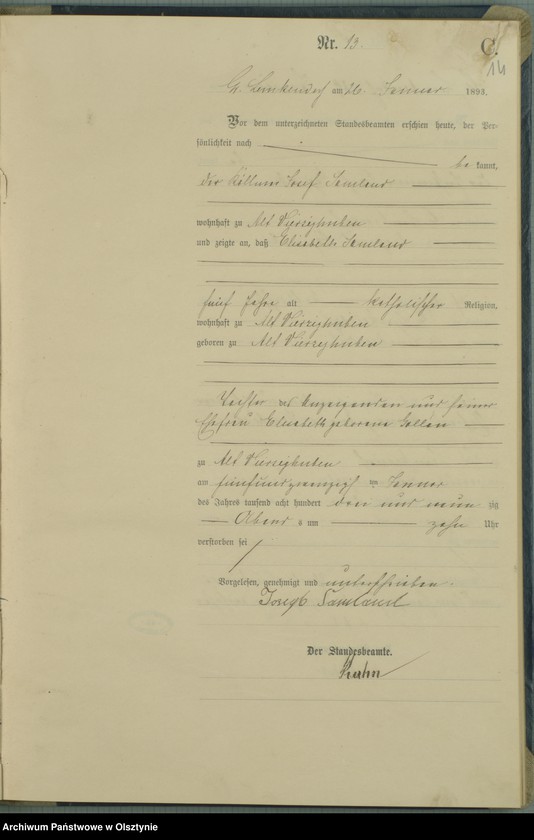 Nr. 13.
C.
14
am 26 Januar 1893.
Vor dem unterzeichneten Standesbeamten erschien heute, der Per-
sönlichkeit nach
be kannt,
der Josef Samland
wohnhaft zu Alt Vierzighuben
und zeigte an, daß Elisabeth Samland
fünf Jahre alt katholischer Religion,
wohnhaft zu Alt Vierzighuben
geboren zu Alt Vierzighuben
Tochter des Anzeigenden und seiner
Ehefrau Elisabeth geborene
zu Alt Vierzighuben
am fünfundzwanzigsten Januar
des Jahres tausend acht hundert drei und neun zig
Abends um zehn Uhr
verstorben sei
Vorgelesen, genehmigt und unterschrieben.
Joseph Samland
Der Standesbeamte.
Archiwum Państwowe w Olsztynie